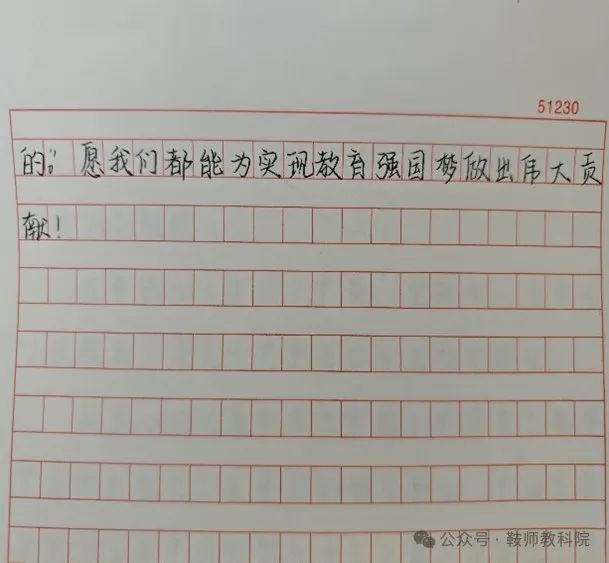 51230
的。”愿我们都能为实现教育强国梦做出伟大贡
献！
公众号·鞍师教科院